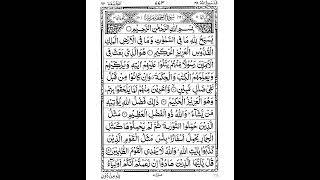 سُوْرَةُ الْجُمُعَةِ مَدَنِيَّةٌ
بِسْمِ اللّٰهِ الرَّحْمٰنِ الرَّحِيْمِ
يُسَبِّحُ لِلّٰهِ مَا فِي السَّمٰوٰتِ وَمَا فِي الْاَرْضِ الْمَلِكِ
الْقُدُّوْسِ الْعَزِيْزِ الْحَكِيْمِ ۝ هُوَ الَّذِيْ بَعَثَ فِي
الْاُمِّيّٖنَ رَسُوْلًا مِّنْهُمْ يَتْلُوْا عَلَيْهِمْ اٰيٰتِهٖ وَيُزَكِّيْهِمْ
وَيُعَلِّمُهُمُ الْكِتٰبَ وَالْحِكْمَةَ وَاِنْ كَانُوْا مِنْ قَبْلُ
لَفِيْ ضَلٰلٍ مُّبِيْنٍ ۝ وَّاٰخَرِيْنَ مِنْهُمْ لَمَّا يَلْحَقُوْا بِهِمْ
وَهُوَ الْعَزِيْزُ الْحَكِيْمُ ۝ ذٰلِكَ فَضْلُ اللّٰهِ يُؤْتِيْهِ
مَنْ يَّشَآءُ وَاللّٰهُ ذُو الْفَضْلِ الْعَظِيْمِ ۝ مَثَلُ
الَّذِيْنَ حُمِّلُوا التَّوْرٰىةَ ثُمَّ لَمْ يَحْمِلُوْهَا كَمَثَلِ
الْحِمَارِ يَحْمِلُ اَسْفَارًا بِئْسَ مَثَلُ الْقَوْمِ الَّذِيْنَ
كَذَّبُوْا بِاٰيٰتِ اللّٰهِ وَاللّٰهُ لَا يَهْدِي الْقَوْمَ الظّٰلِمِيْنَ ۝
قُلْ يٰٓاَيُّهَا الَّذِيْنَ هَادُوْٓا اِنْ زَعَمْتُمْ اَنَّكُمْ اَوْلِيَآءُ